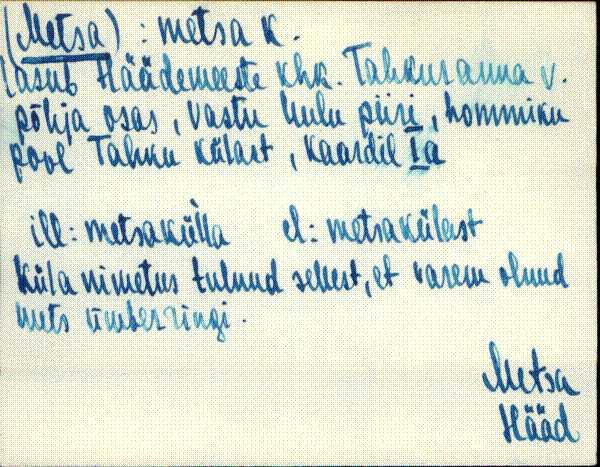 (Metsa) : metsa k.
Asub Häädemeeste khk. Tahkuranna v.
põhja osas, vastu Uulu piiri, hommiku
pool Tahku külast, kaardil Ia
ill: metsakü`lla el: metsakülast
Küla nimetus tulnud sellest, et varem olnud
mets ümberringi.
Metsa
Hääd